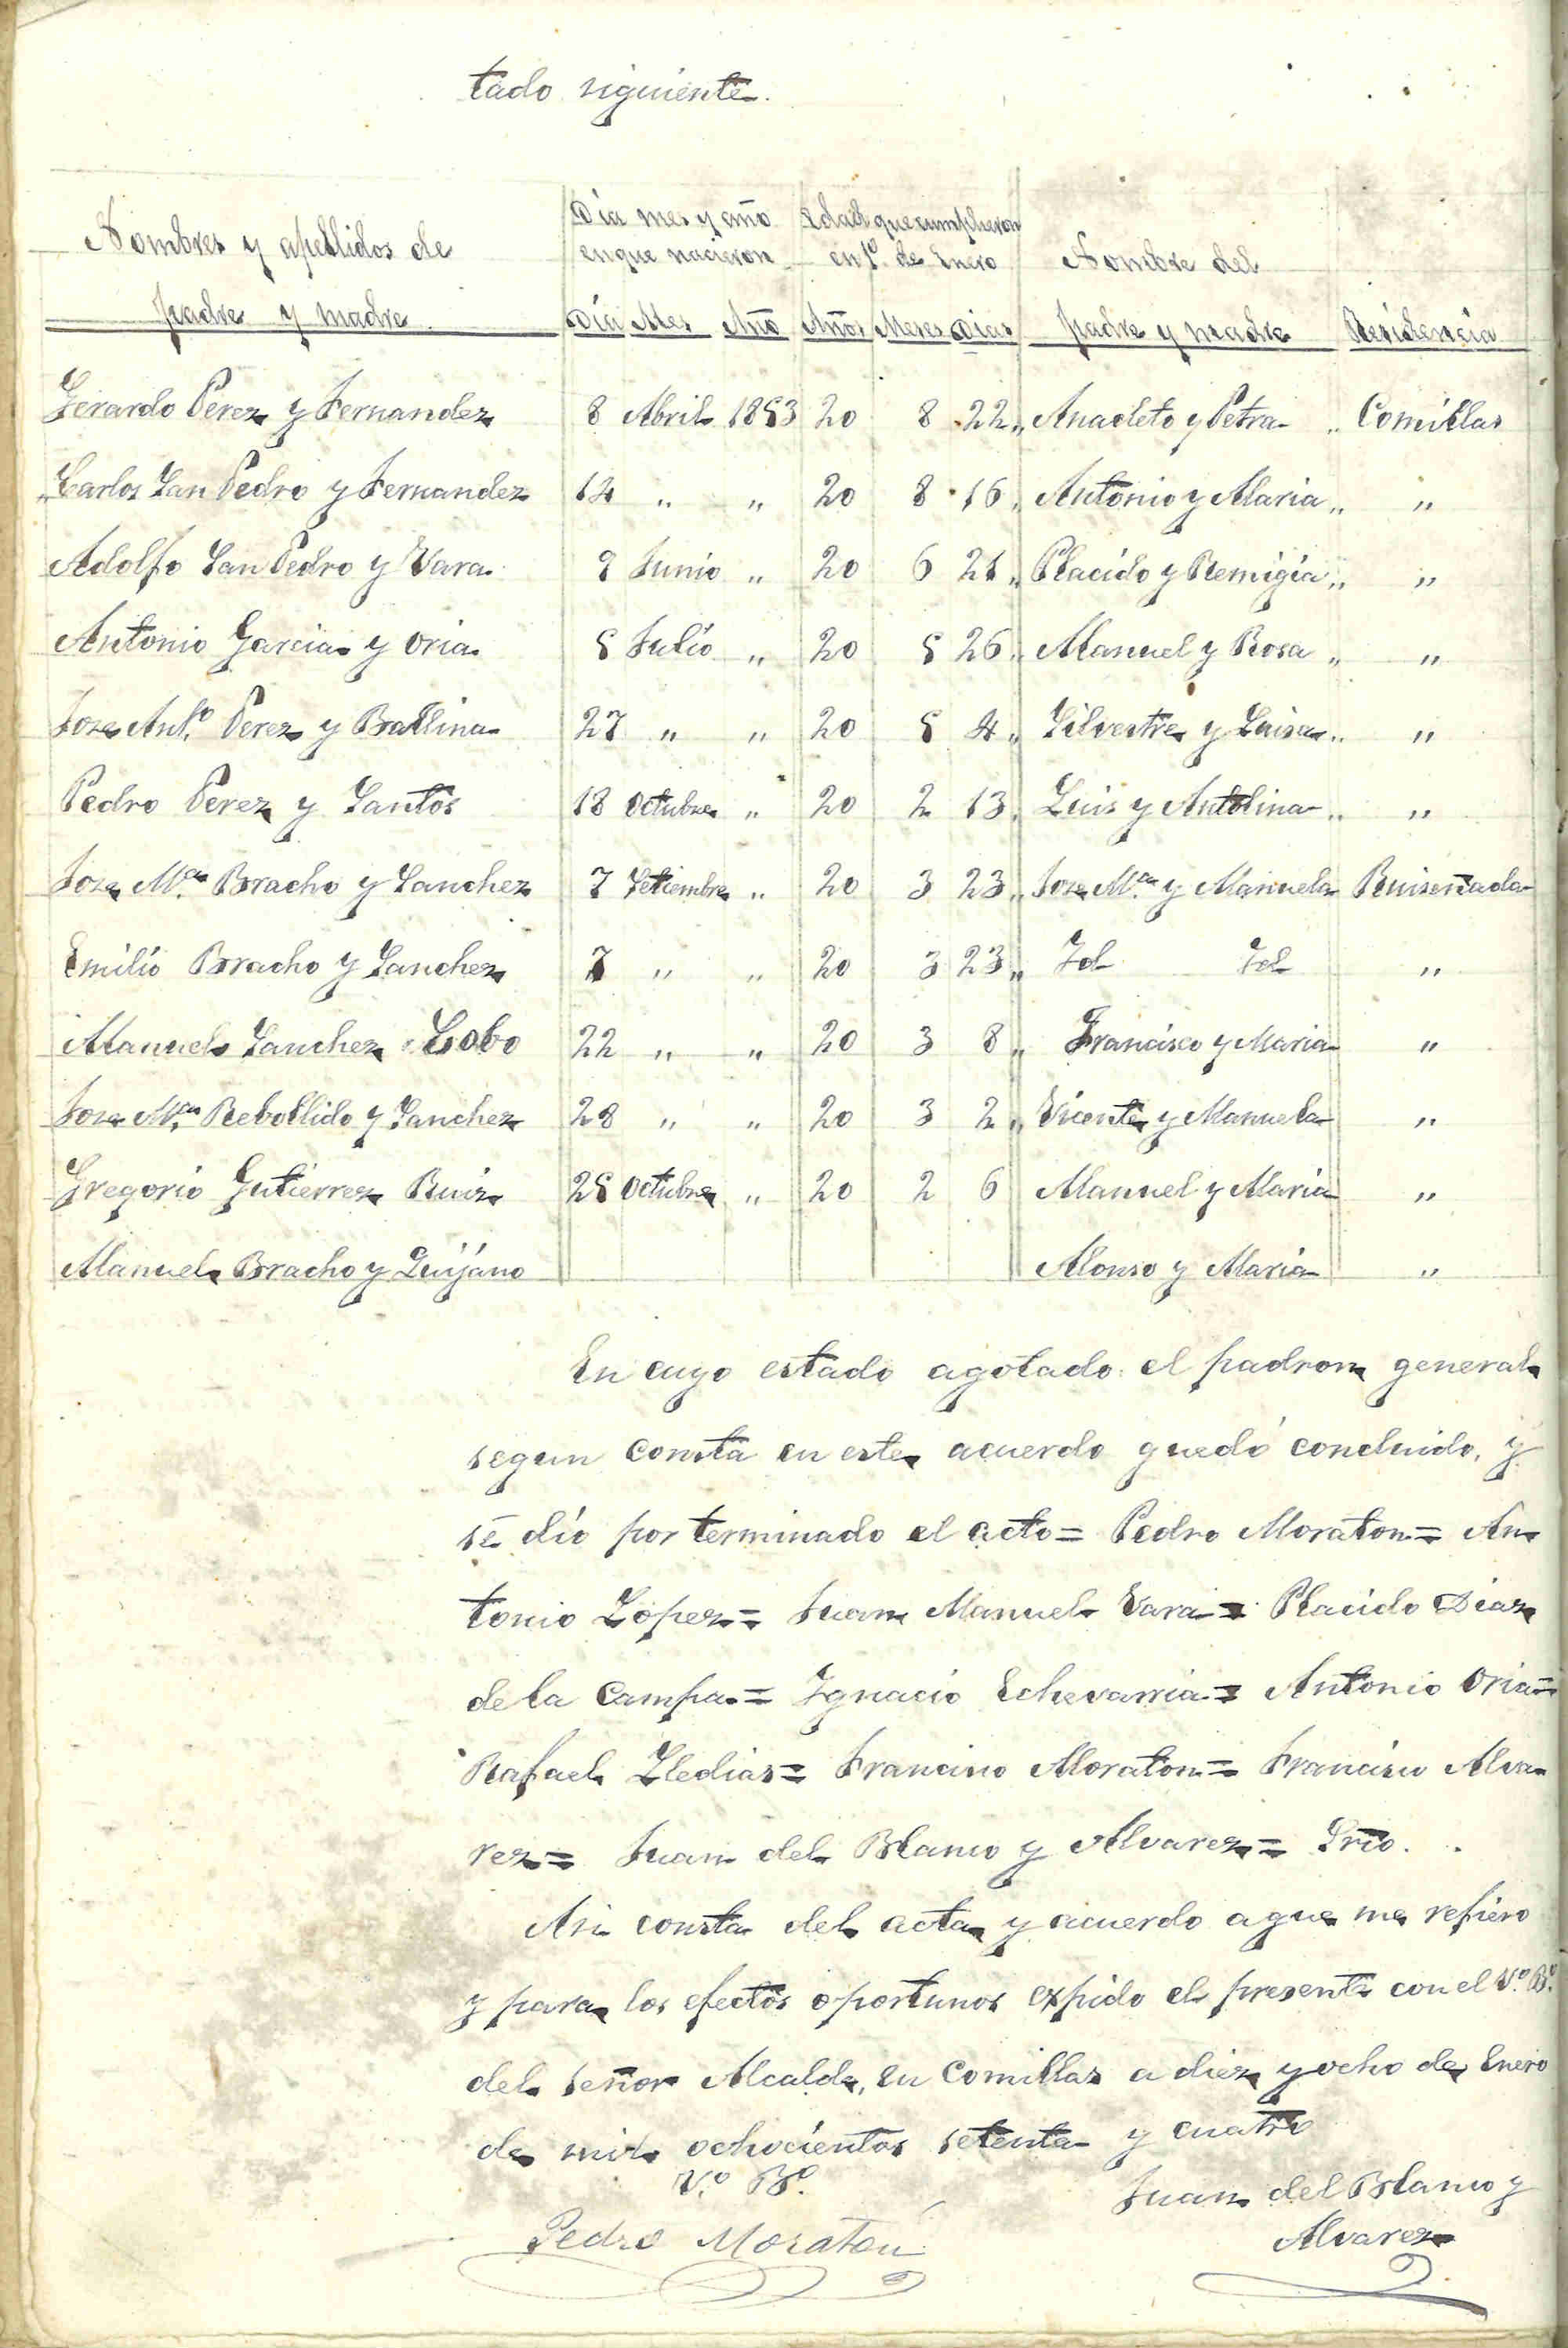 tado siguiente.
Nombres y apellidos de padre y madre | Dia mes y año en que nacieron | Edad que cumplieron en 1º de Enero | Nombre del padre y madre | Residencia
Dia Mes Año Años Meses Dias
Gerardo Perez y Fernandez 8 Abril 1853 20 8 22 „ Anacleto y Petra „ Comillas
Carlos San Pedro y Fernandez 14 „ „ 20 8 16 „ Antonio y Maria „ „
Adolfo San Pedro y Vara 9 Junio „ 20 6 21 „ Placido y Remigia „ „
Antonio Garcia y Oria 5 Julio „ 20 5 26 „ Manuel y Rosa „ „
Jose Antº Perez y Ballina 27 „ „ 20 5 4 „ Silvestre y Luisa „ „
Pedro Perez y Santos 18 Octubre „ 20 2 13 „ Luis y Antolina „ „
Jose Mª Bracho y Sanchez 7 Setiembre „ 20 3 23 „ Jose Mª y Manuela Ruiseñada
Emilio Bracho y Sanchez 7 „ „ 20 3 23 „ Id Id „
Manuel Sanchez Lobo 22 „ „ 20 3 8 „ Francisco y Maria „
Jose Mª Rebollido y Sanchez 28 „ „ 20 3 2 „ Vicente y Manuela „
Gregorio Gutierrez Ruiz 25 Octubre „ 20 2 6 Manuel y Maria „
Manuel Bracho y Quijano Alonso y Maria „
En cuyo estado agotado el padron general
segun consta en este acuerdo quedó concluido, y
se dio por terminado el acto = Pedro Moraton = An
tonio Lopez = Juan Manuel Vara = Placido Diaz
de la Campa = Ignacio Echevarria = Antonio Oria =
Rafael Lledias = Francisco Moraton = Francisco Alva
rez = Juan del Blanco y Alvarez = Srio.
Asi consta del acta y acuerdo a que me refiero
y para los efectos oportunos expido el presente con el Vº Bº
del señor Alcalde, en Comillas a diez y ocho de Enero
de mil ochocientos setenta y cuatro
Vº Bº
Pedro Moraton
Juan del Blanco y
Alvarez